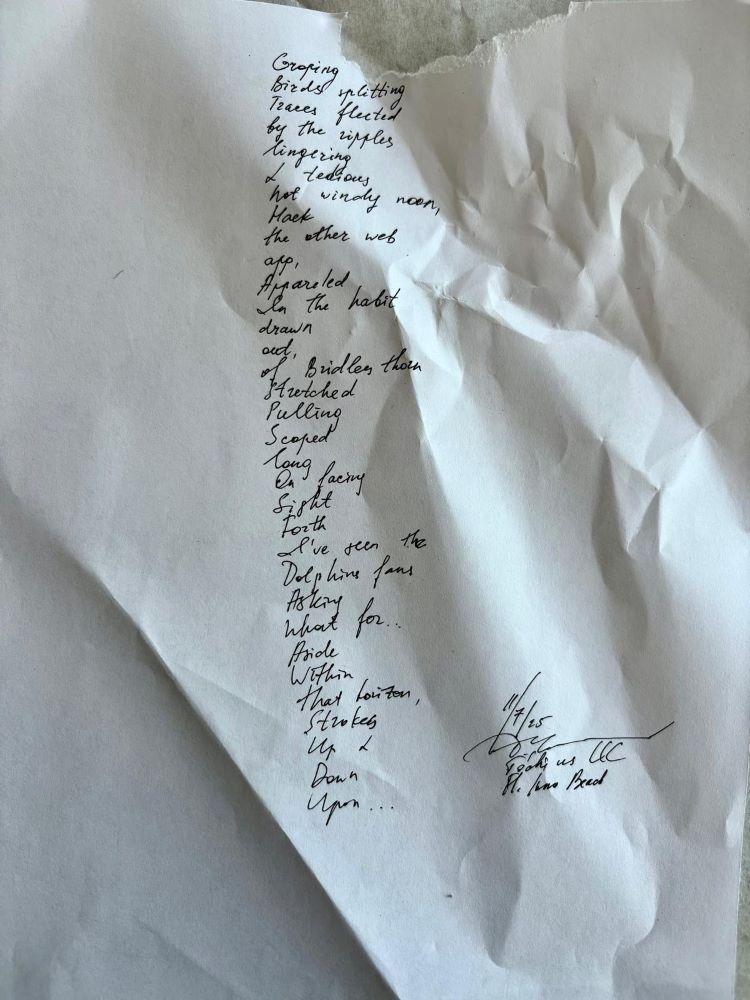 Groping
Birds splitting
Traces flected
by the ripples
lingering
& tedious
hot windy noon,
Hack
the other web
app,
Appareled
In the habit
drawn
out,
of Bridless thorn
Stretched
Pulling
Scoped
long
On facing
Sight
Forth
I've seen the
Dolphins fans
Asking
What for...
Aside
Within
that horizon,
Strokes
Up &
Down
Upon...
11/7/25
us LLC
Beach